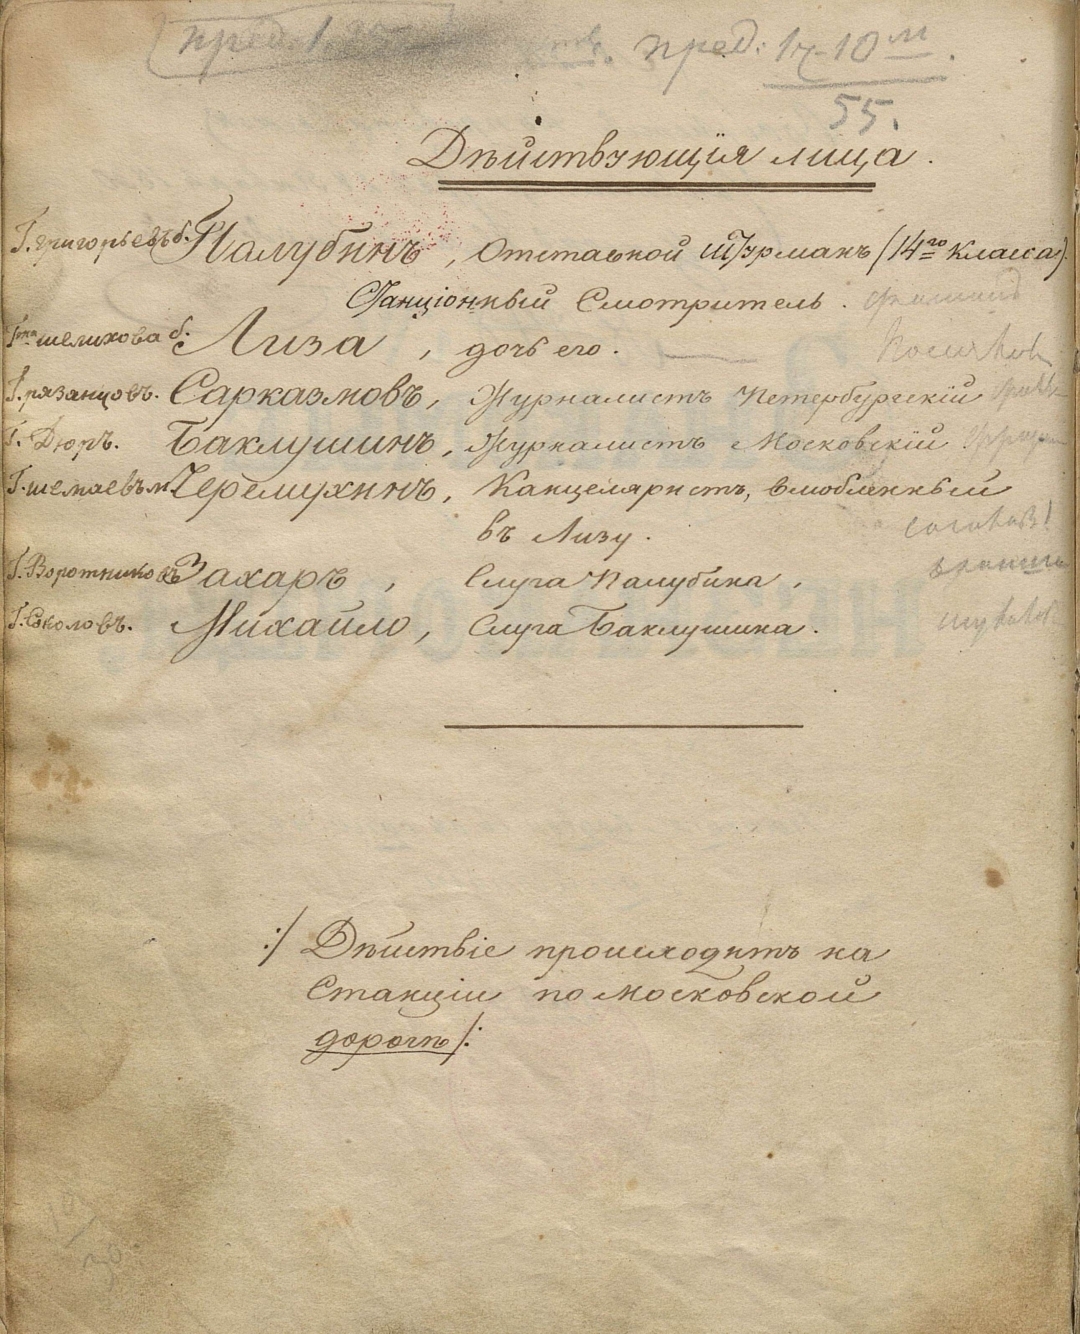 пред: 1 ч 10 м.
55.
Дѣйствующія лица.
Г. Григорьевъ б. Палубинъ, Отставной Штурманъ (14го Класса)
Станціонный Смотритель.
Гжа Шелихова б. Лиза, дочь его.
Г. Рязанцовъ. Сарказмовъ, Журналистъ Петербургскій
Г. Дюръ. Баклушинъ, Журналистъ Московскій
Г. Шемаевъ м. Черемухинъ, Канцеляристъ, влюбленный
въ Лизу.
Г. Воротниковъ Захаръ, Слуга Палубина,
Г. Соколовъ. Михайло, Слуга Баклушина.
:/ Дѣйствіе происходитъ на
Станціи по Московской
дорогѣ /: